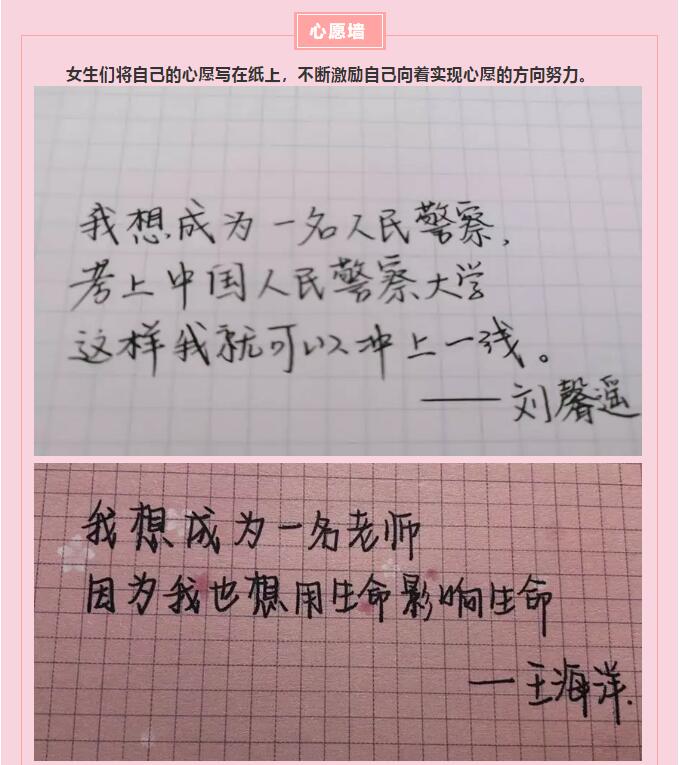 心愿墙
女生们将自己的心愿写在纸上，不断激励自己向着实现心愿的方向努力。
我想成为一名人民警察，
考上中国人民警察大学
这样我就可以冲上一线。
——刘馨遥
我想成为一名老师
因为我也想用生命影响生命
—王海洋.